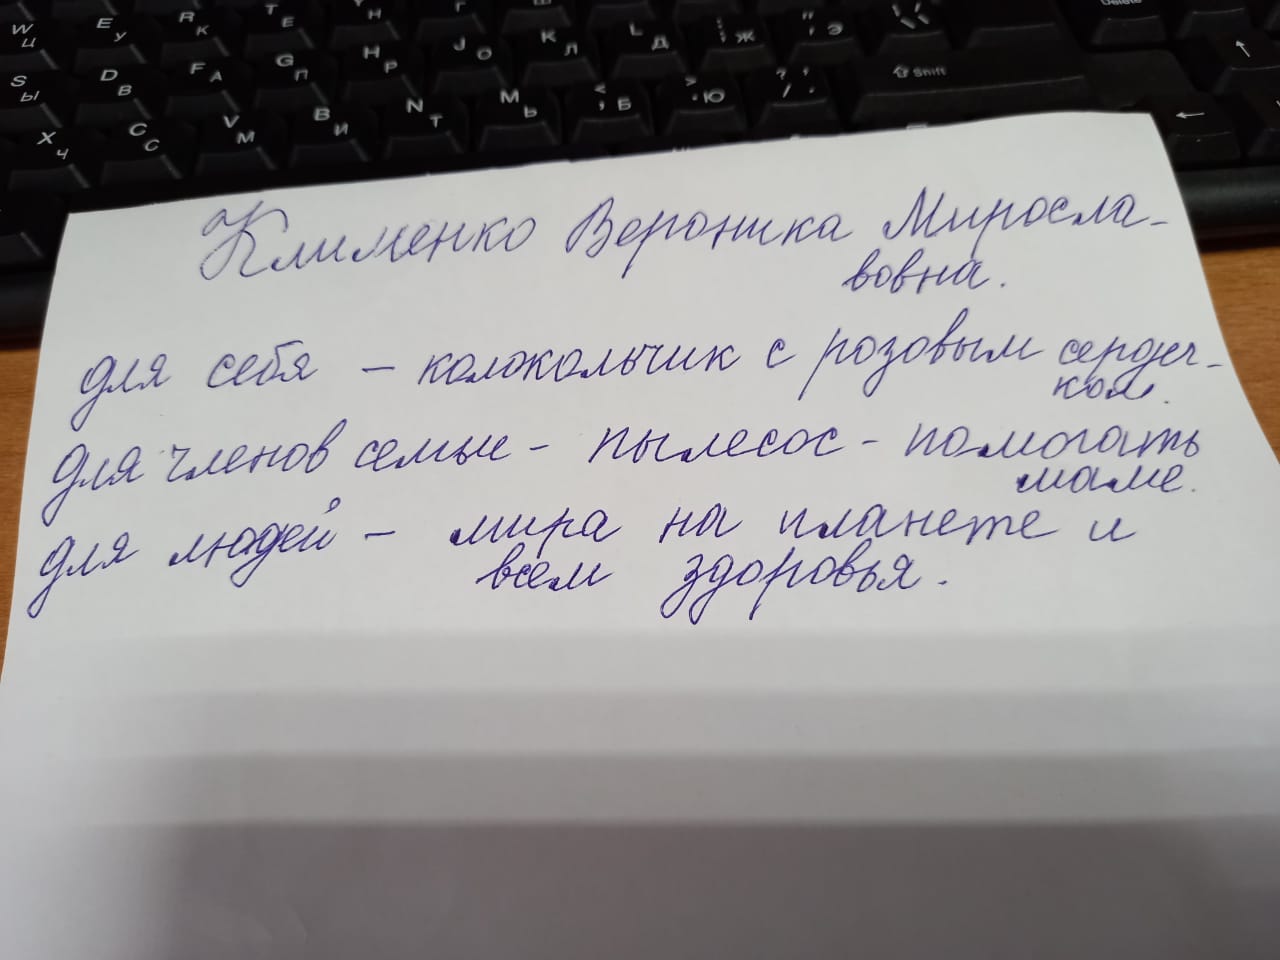 W Ц E У R К T Е Н Г Ш
S Ы D В F А G П H Р J О K Л L Д ; Ж " Э
X Ч C С V М B И N Т M Ь < , Б > . Ю ? / . Shift
Клименко Вероника Миросла-
вовна.
для себя – колокольчик с розовым сердеч-
ком.
для членов семьи - пылесос - помогать
маме.
для людей – мира на планете и
всем здоровья.